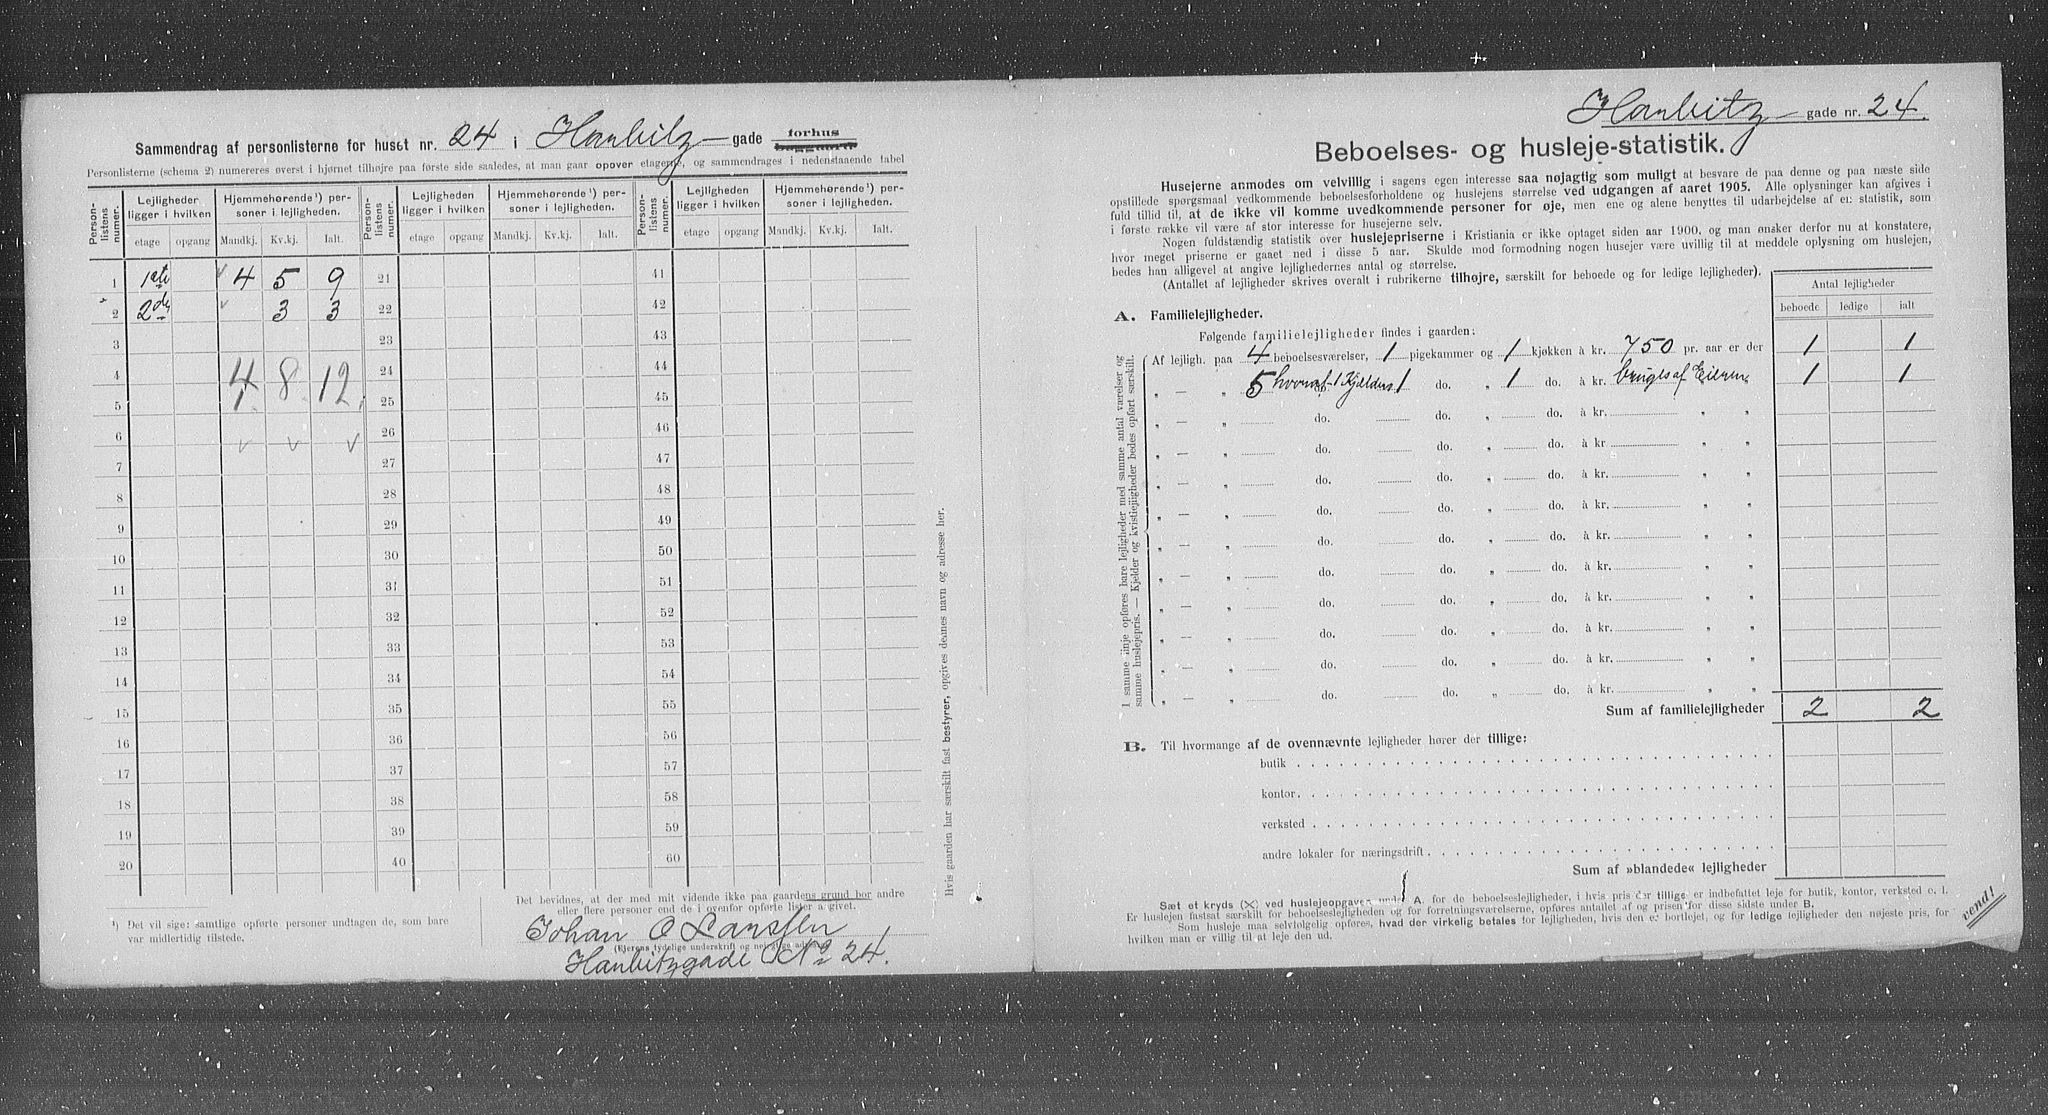 Sammendrag af personlisterne for huset nr. 24 i Haubitz-gade forhus
Personlisterne (schema 2) numereres øverst i hjørnet tilhøjre paa første side saaledes, at man gaar opover etagerne, og sammendrages i nedenstaaende tabel
Person-listens numer. Lejligheder ligger i hvilken Hjemmehørende ¹) personer i lejligheden. Person-listens numer. Lejligheden ligger i hvilken Hjemmehørende ¹) personer i lejligheden. Person-listens numer. Lejligheden ligger i hvilken Hjemmehørende ¹) personer i lejligheden.
etage opgang Mandkj. Kv.kj. Ialt. etage opgang Mandkj. Kv.kj. Ialt. etage opgang Mandkj. Kv.kj. Ialt.
1 1ste 4 5 9 21 41
2 2de 3 3 22 42
3 23 43
4 4 8 12 24 44
5 25 45
6 26 46
7 27 47
8 28 48
9 29 49
10 30 50
11 31 51
12 32 52
13 33 53
14 34 54
15 35 55
16 36 56
17 37 57
18 38 58
19 39 59
20 40 60
¹) Det vil sige: samtlige opførte personer undtagen de, som bare
var midlertidig tilstede.
Det bevidnes, at der med mit vidende ikke paa gaardens grund bor andre
eller flere personer end de i ovenfor opførte lister angivet.
Johan O Larssen
(Ejerens tydelige underskrift og nøjagtige adresse)
Haubitzgade No 24.
Hvis gaarden har særskilt fast bestyrer, opgives dennes navn og adresse her.
Haubitz-gade nr. 24.
Beboelses- og husleje-statistik.
Husejerne anmodes om velvillig i sagens egen interesse saa nøjagtig som muligt at besvare de paa denne og paa næste side
opstillede spørgsmaal vedkommende beboelsesforholdene og huslejens størrelse ved udgangen af aaret 1905. Alle oplysninger kan afgives i
fuld tillid til, at de ikke vil komme uvedkommende personer for øje, men ene og alene benyttes til udarbejdelse af en statistik, som
i første række vil være af stor interesse for husejerne selv.
Nogen fuldstændig statistik over huslejepriserne i Kristiania er ikke optaget siden aar 1900, og man ønsker derfor nu at konstatere,
hvor meget priserne er gaaet ned i disse 5 aar. Skulde mod formodning nogen husejer være uvillig til at meddele oplysning om huslejen,
bedes han alligevel at angive lejlighedernes antal og størrelse.
(Antallet af lejligheder skrives overalt i rubrikerne tilhøjre, særskilt for beboede og for ledige lejligheder).
Antal lejligheder
beboede ledige ialt
A. Familielejligheder.
Følgende familielejligheder findes i gaarden:
Af lejligh. paa 4 beboelsesværelser, 1 pigekammer og 1 kjøkken à kr. 750 pr. aar er der 1 1
„ — „ 5 hvoraf 1 Kjelder 1 do. „ 1 do. à kr. bruges af Eieren 1 1
„ — „ do. do. „ do. à kr. „ „
„ — „ do. do. „ do. à kr. „ „
„ — „ do. do. „ do. à kr. „ „
„ — „ do. do. „ do. à kr. „ „
„ — „ do. do. „ do. à kr. „ „
„ — „ do. do. „ do. à kr. „ „
„ — „ do. do. „ do. à kr. „ „
„ — „ do. do. „ do. à kr. „ „
„ — „ do. do. „ do. à kr. „ „
„ — „ do. do. „ do. à kr. „ „
I samme linje opføres bare lejligheder med samme antal værelser og
samme huslejepris. — Kjelder og kvistlejligheder bedes opført særskilt.
Sum af familielejligheder 2 2
B. Til hvormange af de ovennævnte lejligheder hører der tillige:
butik
kontor
verksted
andre lokaler for næringsdrift
Sum af »blandede« lejligheder
Sæt et kryds (X) ved huslejeopgaven under A. for de beboelseslejligheder, i hvis pris der tillige er indbefattet leje for butik, kontor, verksted e. l.
Er huslejen fastsat særskilt for beboelseslejligheden og for forretningsværelserne, opføres antallet af og prisen for disse sidste under B.
Som husleje maa selvfølgelig opføres, hvad der virkelig betales for lejligheden, hvis den er bortlejet, og for ledige lejligheder den nøjeste pris, for
hvilken man er villig til at leje den ud.
vend!